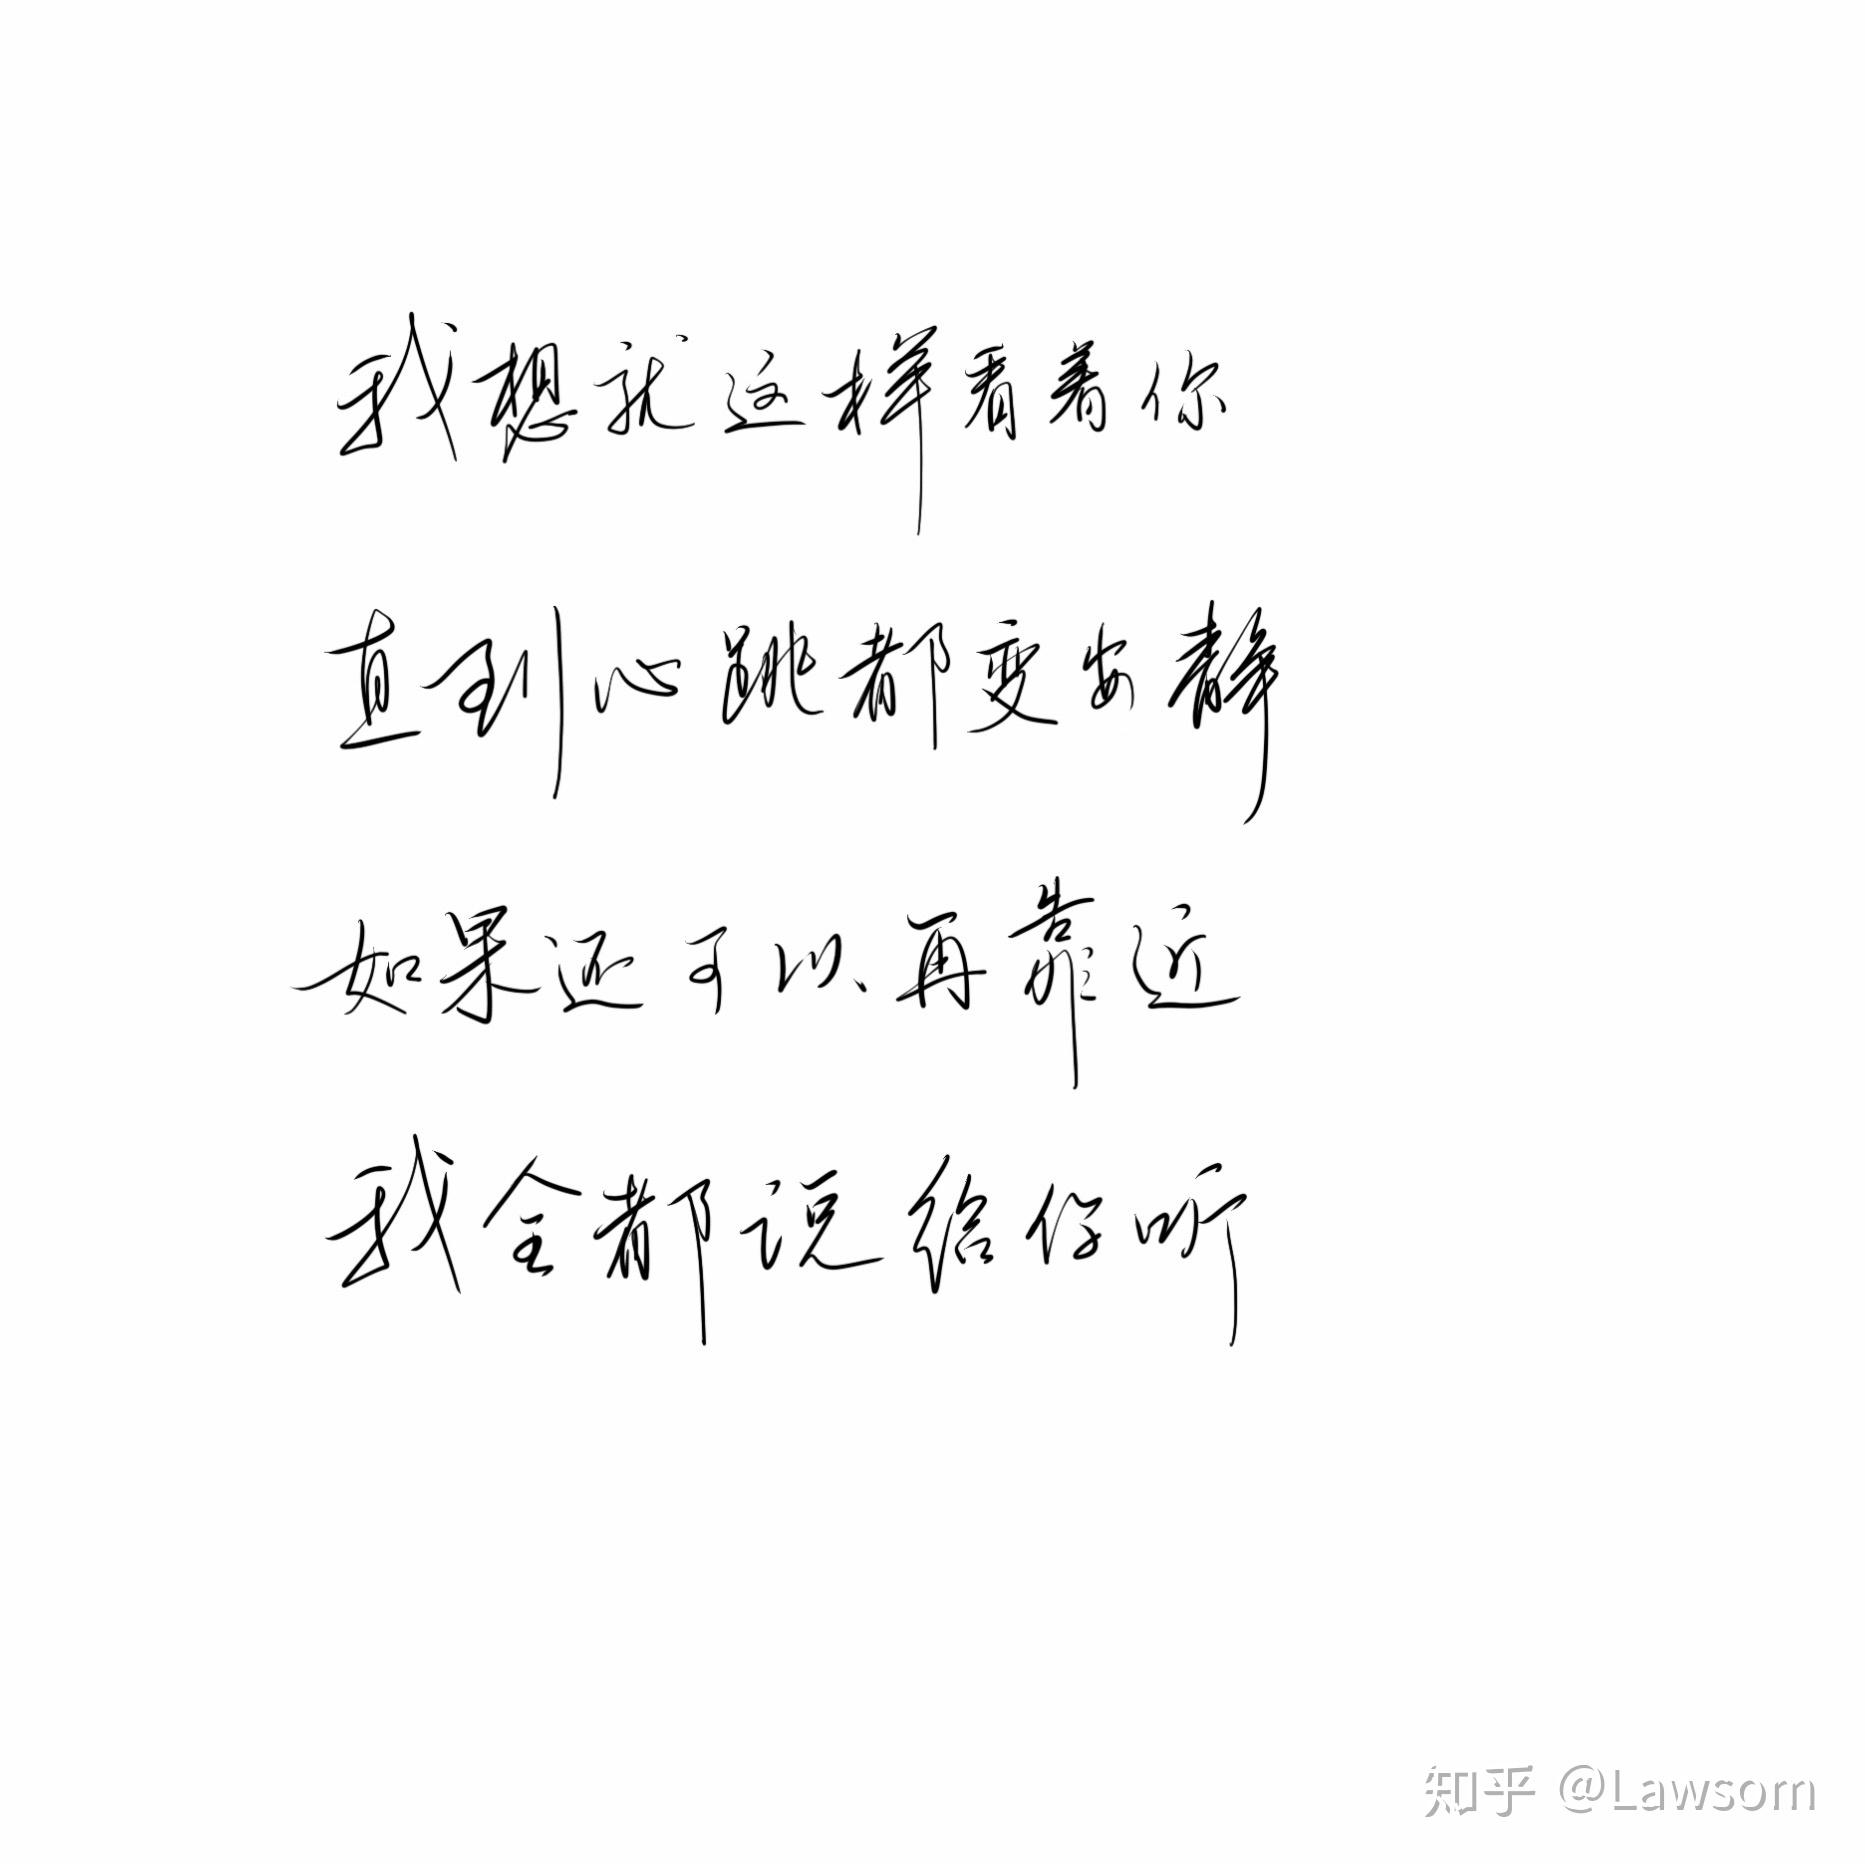 我想就这样看着你
直到心跳都变安静
如果还可以再靠近
我全都说给你听
知乎 @Lawsorn